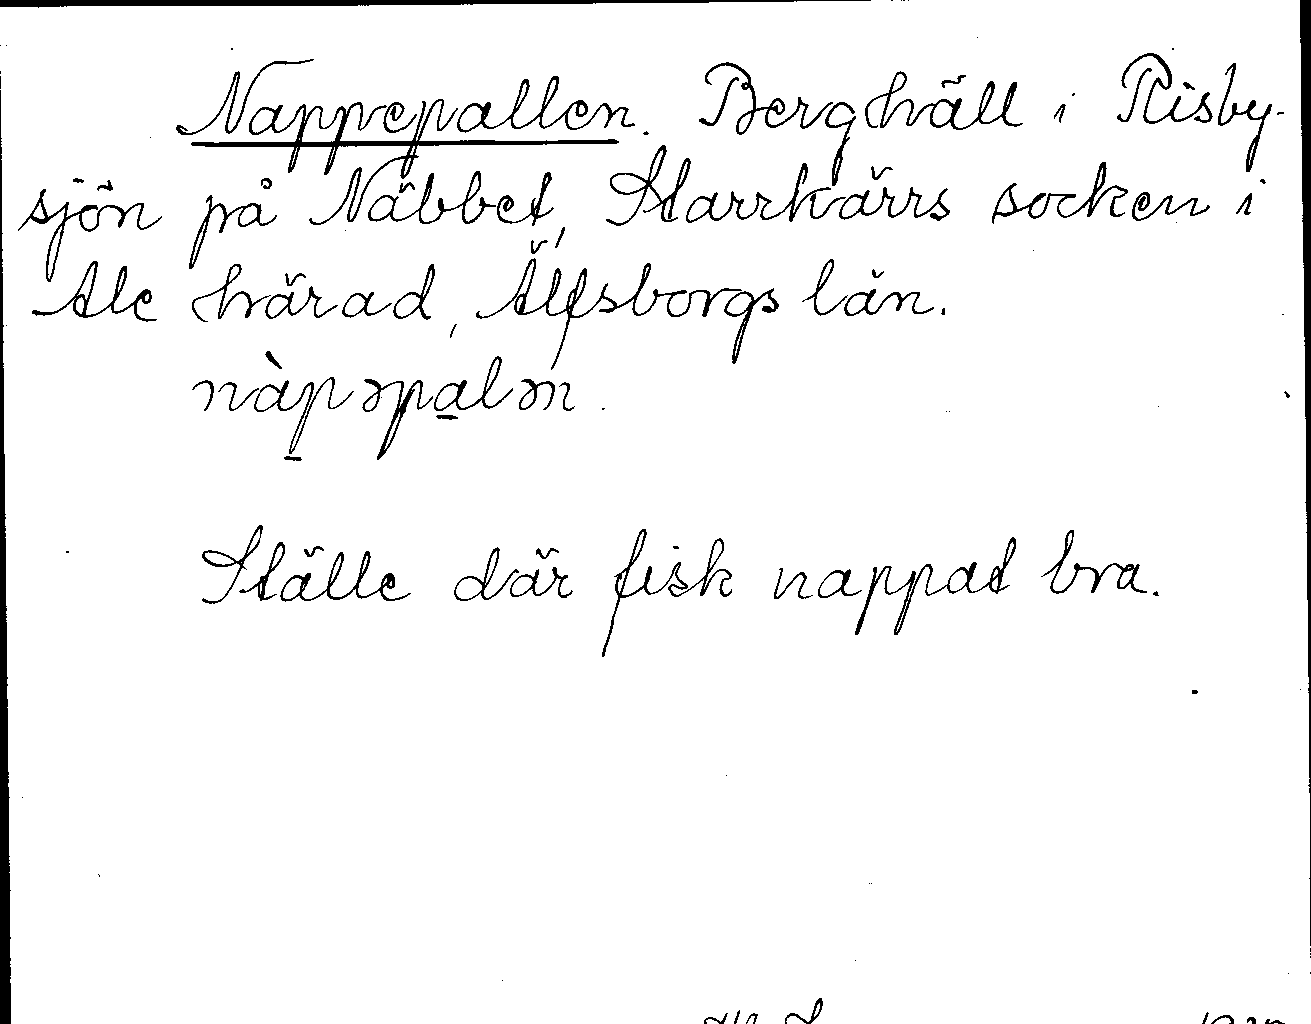 Nappepallen. Berghäll i Risby-
sjön på Näbbet, Starrkärrs socken i
Ale härad, Älfsborgs län.
nàp̱əpa̱lən
Ställe där fisk nappat bra.